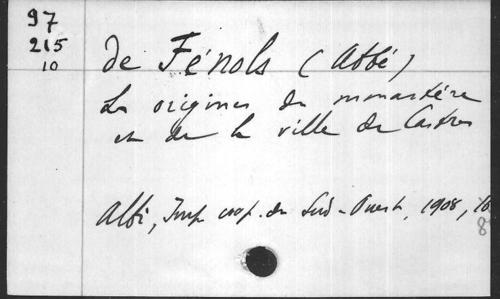 97
215
10
de Fénols (Abbé)
Les origines du monastère
et de la ville de Castres
Albi, Imp. coop. du Sud-Ouest, 1908,
8